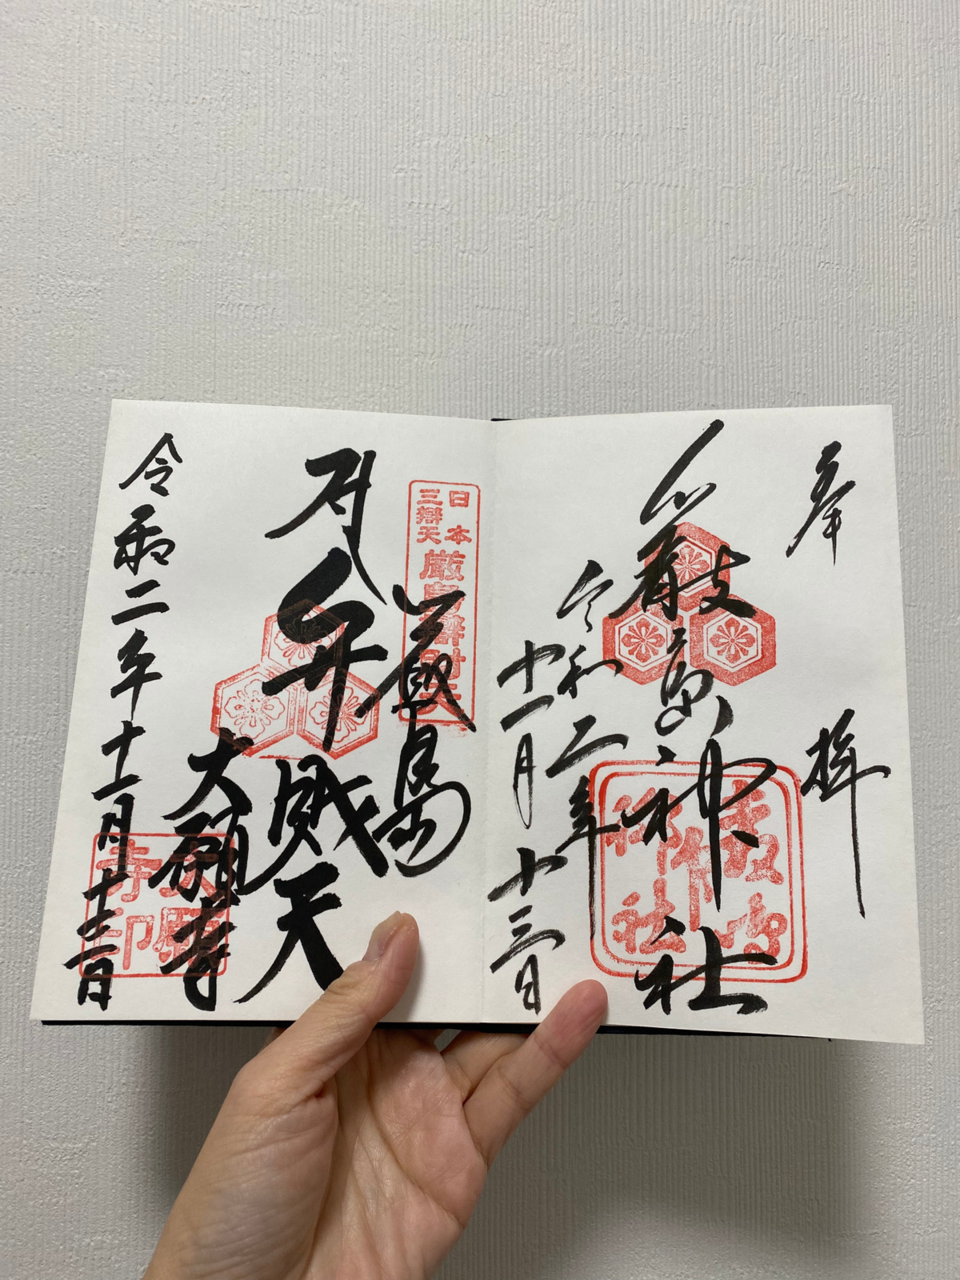 奉拝
嚴島神社
嚴島神社
令和二年
十一月十三日
日本
三辯天
厳島辯財天
嚴島
弁財天
大願寺
大願
寺印
令和二年十一月十三日